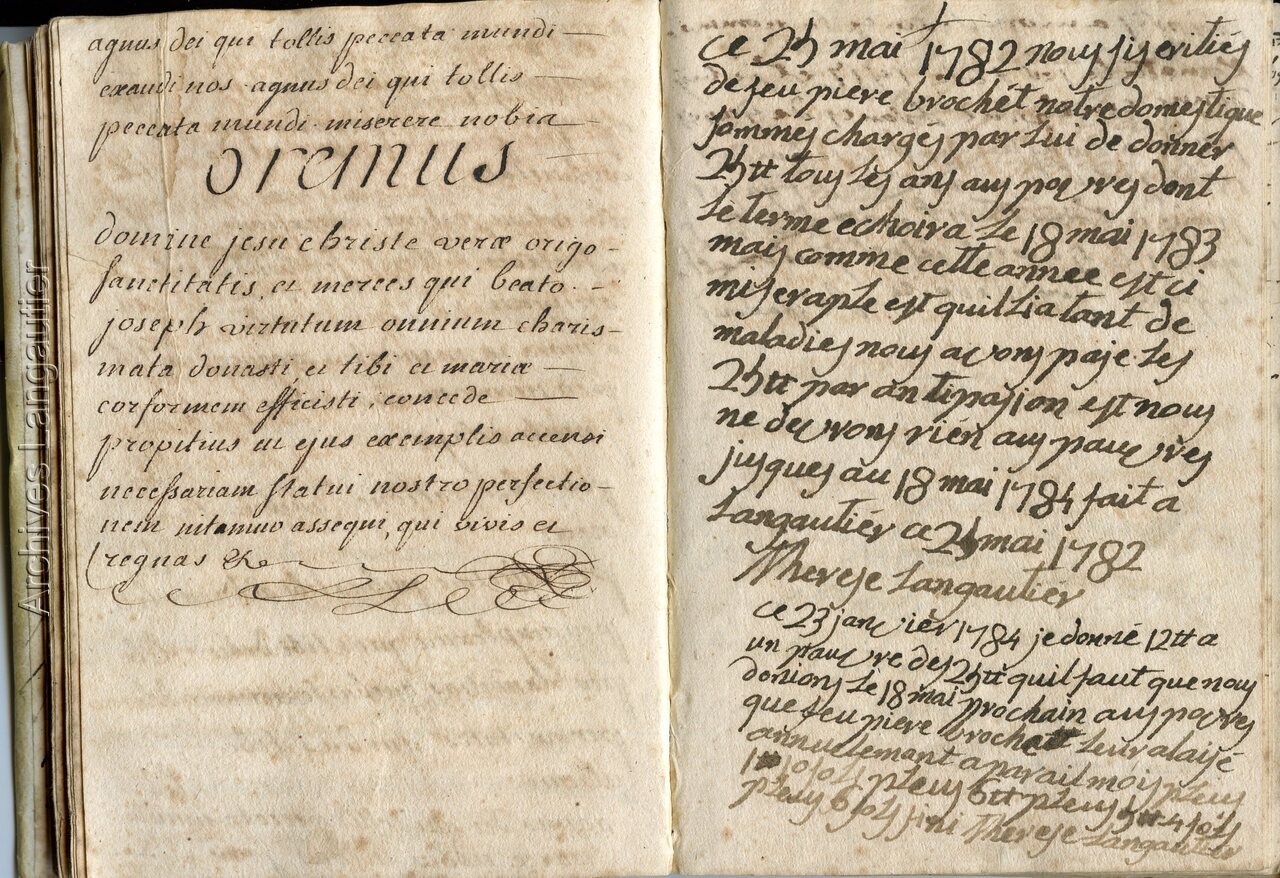 agnus dei qui tollis peccata mundi —
exaudi nos agnus dei qui tollis —
peccata mundi miserere nobis —
oremus
domine jesu christe veræ origo -
sanctitatis, et merces qui beato -
joseph virtutum omnium charis-
mata donasti et tibi et mariæ —
corformem efficisti, concede —
propitius ut ejus exemplis accensi
necessariam statui nostro perfectio-
nem nitamur assequi, qui vivis et
regnas &c
ce 25 mai 1782 nous
de feu piere brochét notre domestique
sommes chargés par lui de donnér
25tt tous les ans aus pauvres dont
le terme echoira le 18 mai 1783
mais comme cette annee est ci
miseraple est quil lia tant de
maladies nous avons paje les
25tt par antipasion est nous
ne devrons rien aus pauvres
jusques au 18 mai 1784 fait a
Langautiér ce 25 mai 1782
Therese Langautiér
ce 23 janviér 1784 je donné 12tt a
un pauvre des 25tt quil faut que nous
donions le 18 mai prochain aus povres
que feu piere brochett leur a laisé
annuellemant a parail mois pleus
sols pleus 6tt pleus 4 sols
pleus 6 sols fini Therese Langautiér
Archives Langautier